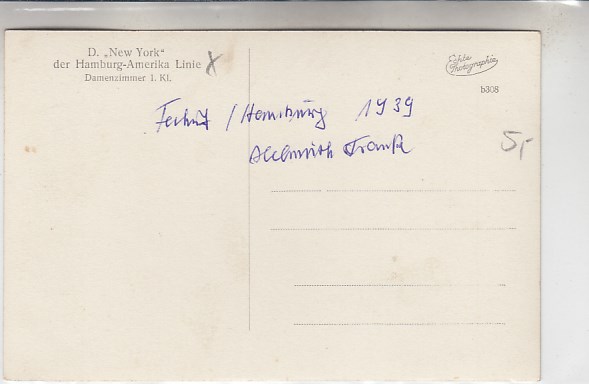 D. „New York“
der Hamburg-Amerika Linie
Damenzimmer 1. Kl.
Echte Photographie
b308
/ Hamburg 1939
Frank
5,-